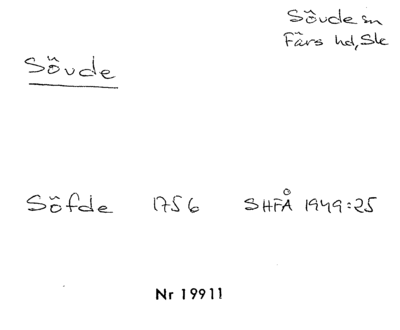 Sövde sn
Färs hd, Sk
Sövde
Söfde 1756 SHFÅ 1949:25
Nr 19911